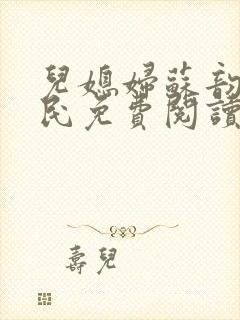 兒媳婦蘇韵
民免費閱讀
壽兒